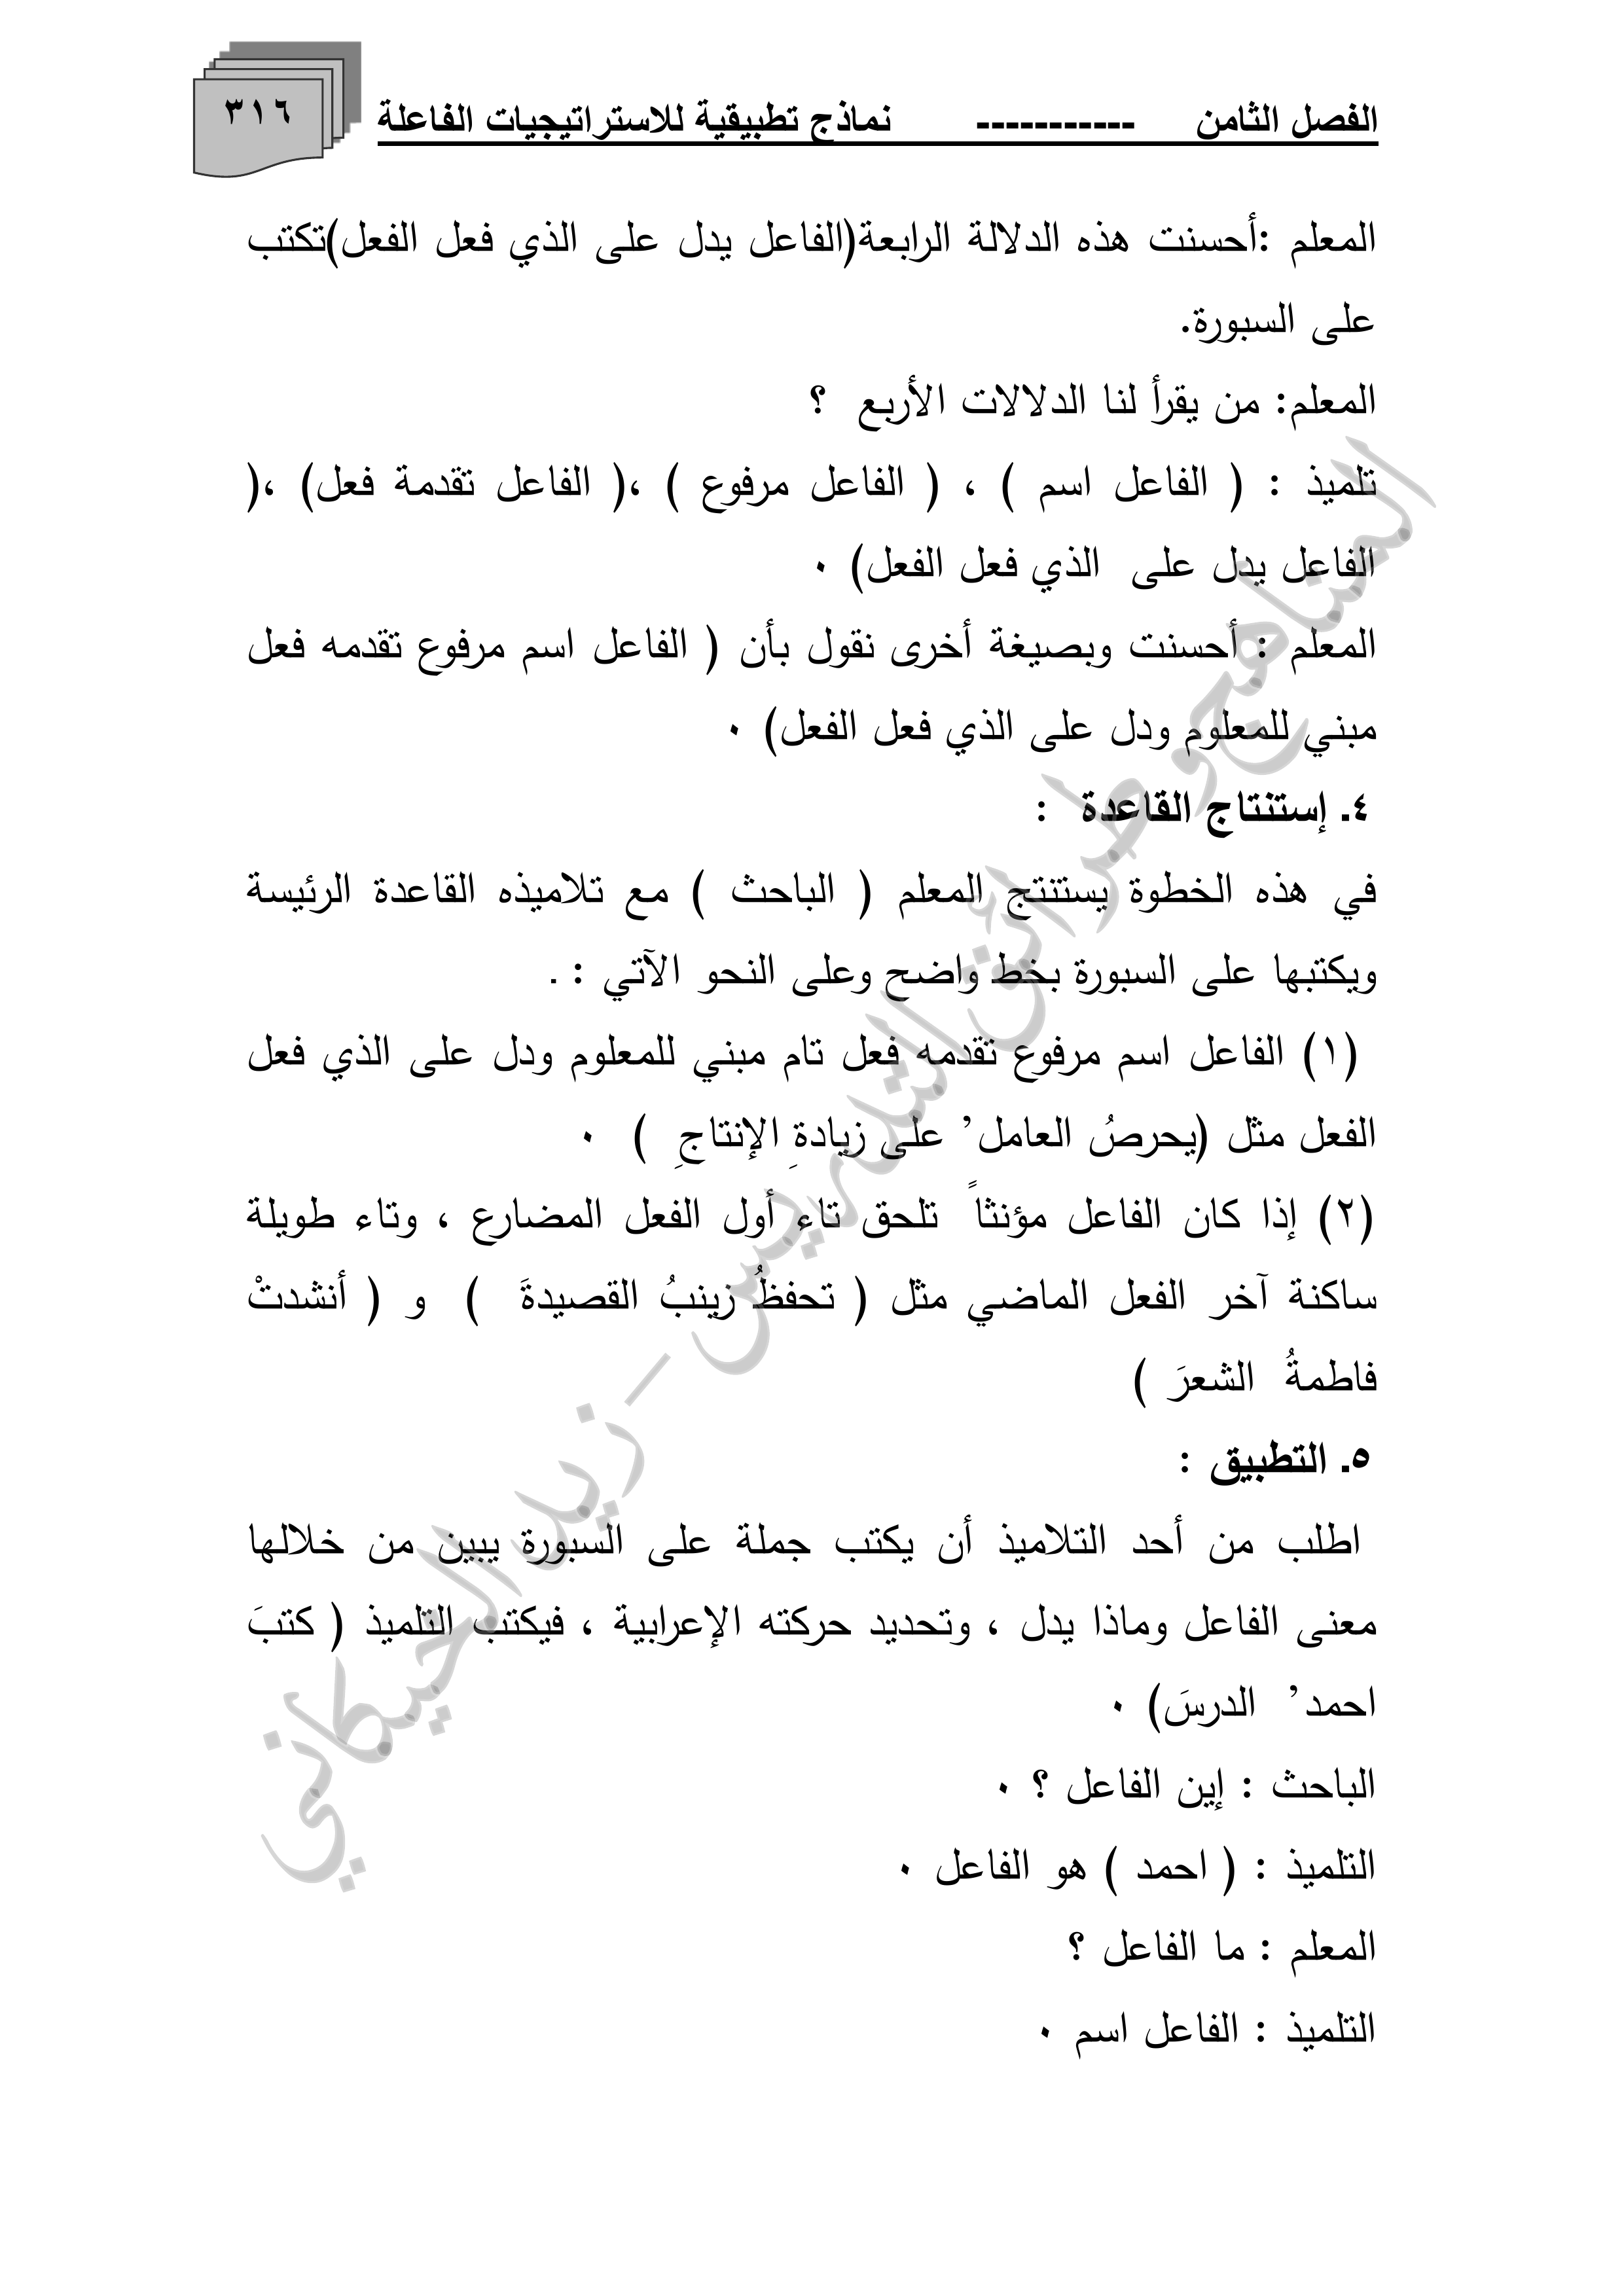 الفصل الثامن ----------- نماذج تطبيقية للاستراتيجيات الفاعلة
٣١٦
المعلم :أحسنت هذه الدلالة الرابعة(الفاعل يدل على الذي فعل الفعل)تكتب
على السبورة.
المعلم: من يقرأ لنا الدلالات الأربع ؟
تلميذ : ( الفاعل اسم ) ، ( الفاعل مرفوع ) ،( الفاعل تقدمة فعل) ،(
الفاعل يدل على الذي فعل الفعل) ٠
المعلم : أحسنت وبصيغة أخرى نقول بأن ( الفاعل اسم مرفوع تقدمه فعل
مبني للمعلوم ودل على الذي فعل الفعل) ٠
٤. إستنتاج القاعدة :
في هذه الخطوة يستنتج المعلم ( الباحث ) مع تلاميذه القاعدة الرئيسة
ويكتبها على السبورة بخط واضح وعلى النحو الآتي : .
(١) الفاعل اسم مرفوع تقدمه فعل تام مبني للمعلوم ودل على الذي فعل
الفعل مثل (يحرصُ العامل’ على زيادةِ الإنتاجِ ) ٠
(٢) إذا كان الفاعل مؤنثاً تلحق تاء أول الفعل المضارع ، وتاء طويلة
ساكنة آخر الفعل الماضي مثل ( تحفظُ زينبُ القصيدةَ ) و ( أنشدتْ
فاطمةُ الشعرَ )
٥. التطبيق :
اطلب من أحد التلاميذ أن يكتب جملة على السبورة يبين من خلالها
معنى الفاعل وماذا يدل ، وتحديد حركته الإعرابية ، فيكتب التلميذ ( كتبَ
احمد’ الدرسَ) ٠
الباحث : إين الفاعل ؟ ٠
التلميذ : ( احمد ) هو الفاعل ٠
المعلم : ما الفاعل ؟
التلميذ : الفاعل اسم ٠
المناهج وطرائق التدريس - زيد الحيكاني